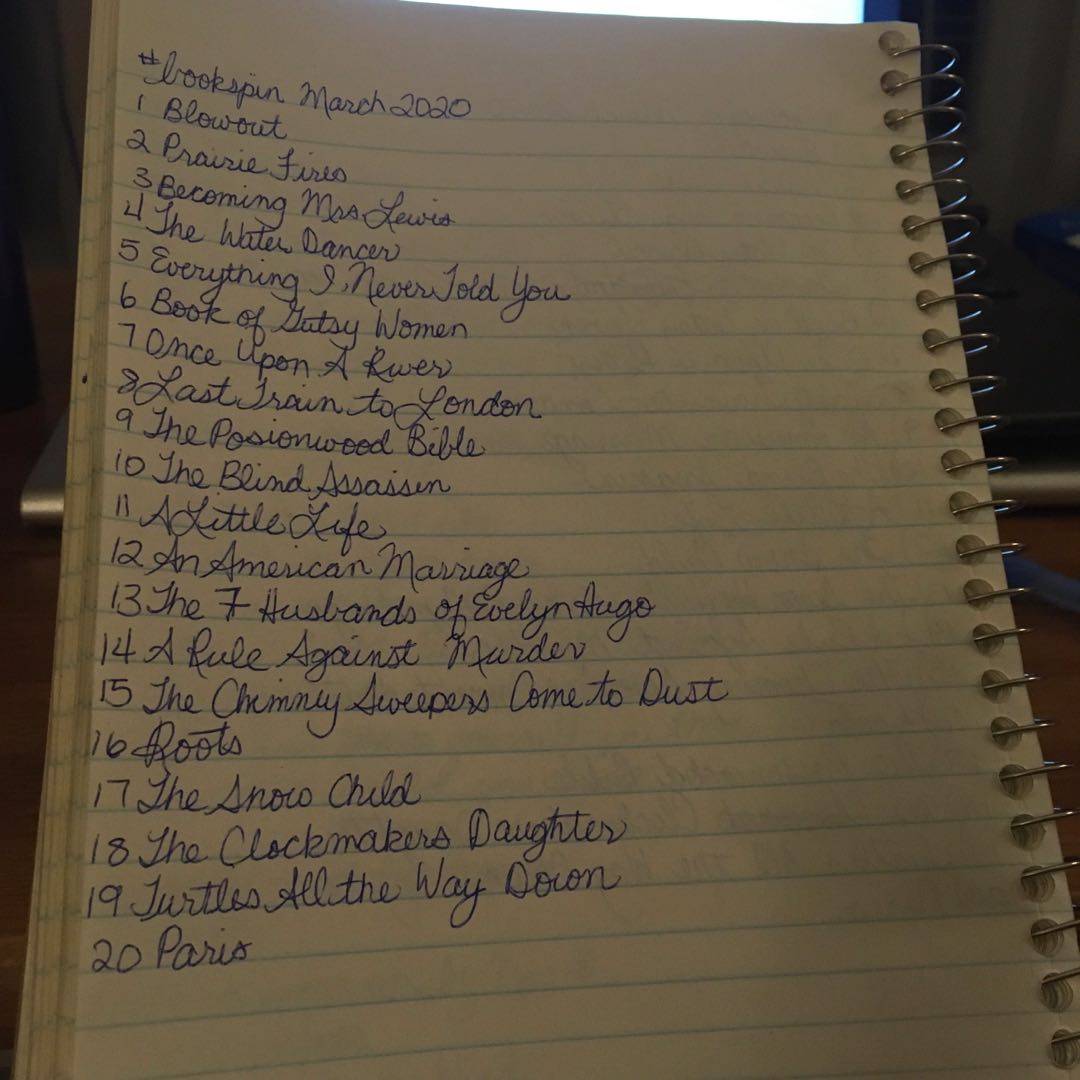 #bookspin March 2020
1 Blowout
2 Prairie Fires
3 Becoming Mrs Lewis
4 The Water Dancer
5 Everything I Never Told You
6 Book of Gutsy Women
7 Once Upon A River
8 Last Train to London
9 The Posionwood Bible
10 The Blind Assassin
11 A Little Life
12 An American Marriage
13 The 7 Husbands of Evelyn Hugo
14 A Rule Against Murder
15 The Chimney Sweepers Come to Dust
16 Roots
17 The Snow Child
18 The Clockmakers Daughter
19 Turtles All the Way Down
20 Paris